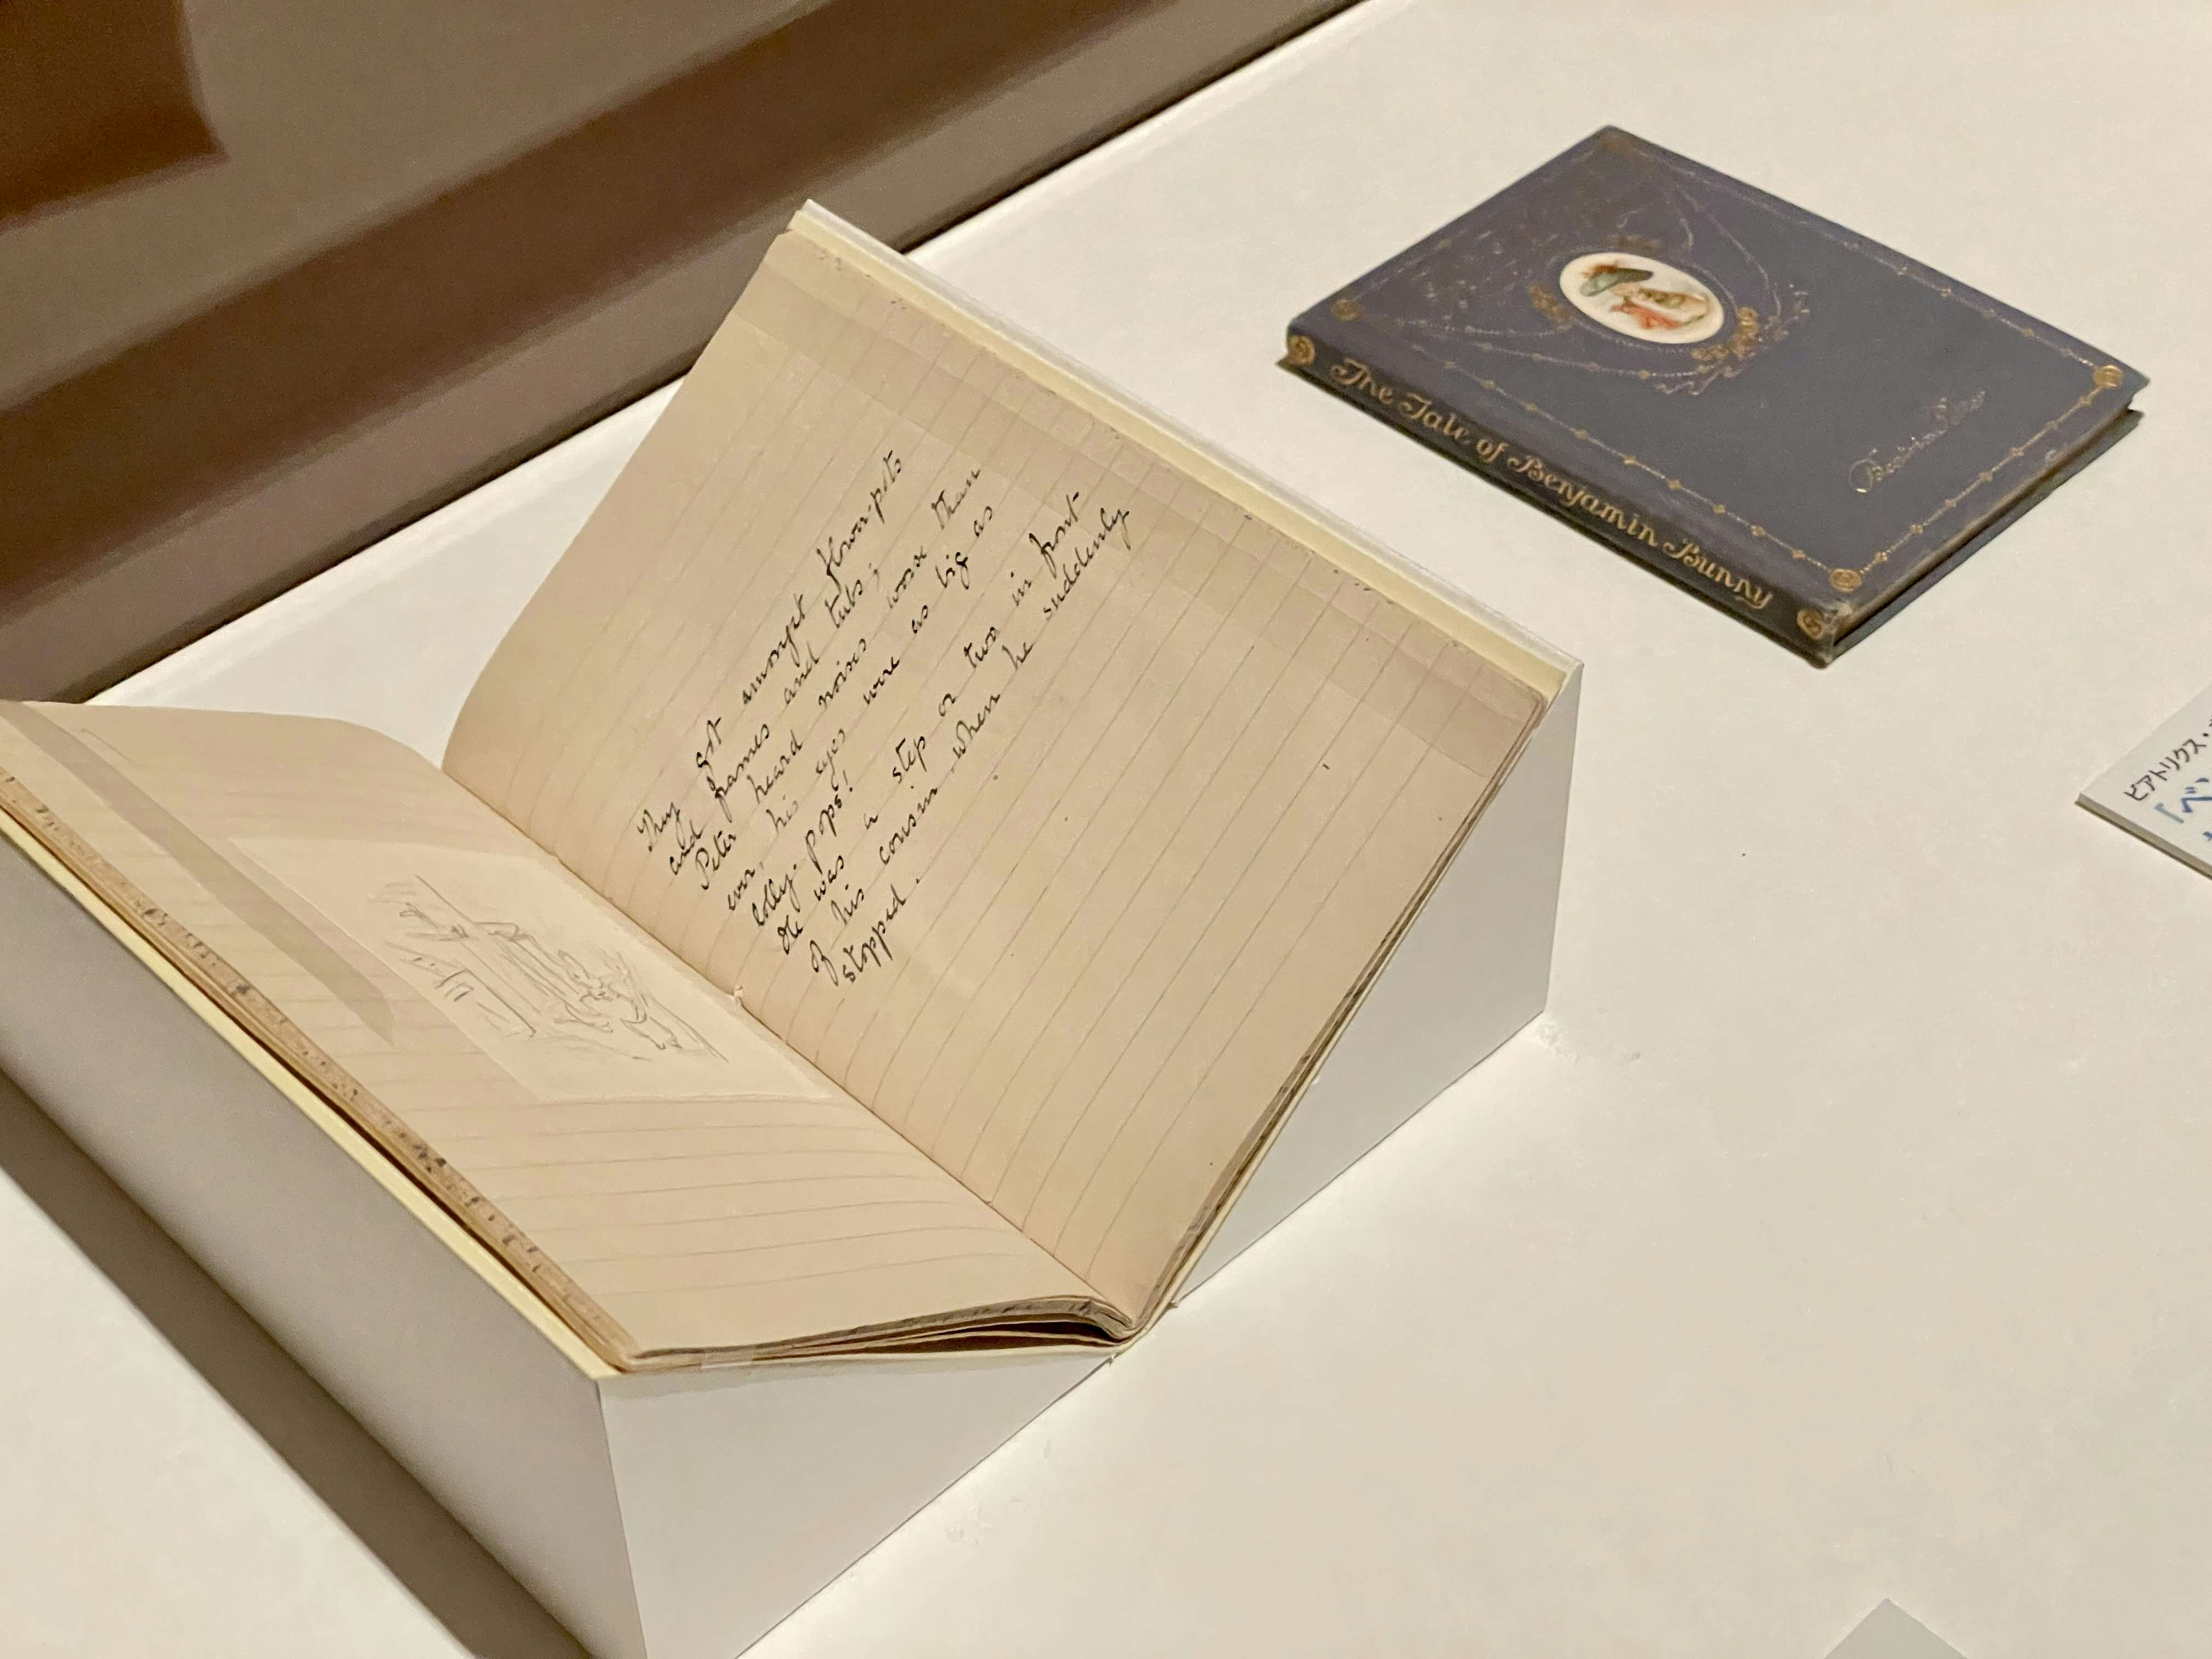 They got amongst flower-pots
and frames and tubs;
Peter heard noises worse than
ever, his eyes were as big as
lolly-pops!
He was a step or two in front
of his cousin, when he suddenly
stopped.
The Tale of Benjamin Bunny
Beatrix Potter
ビアトリクス・
「ベン